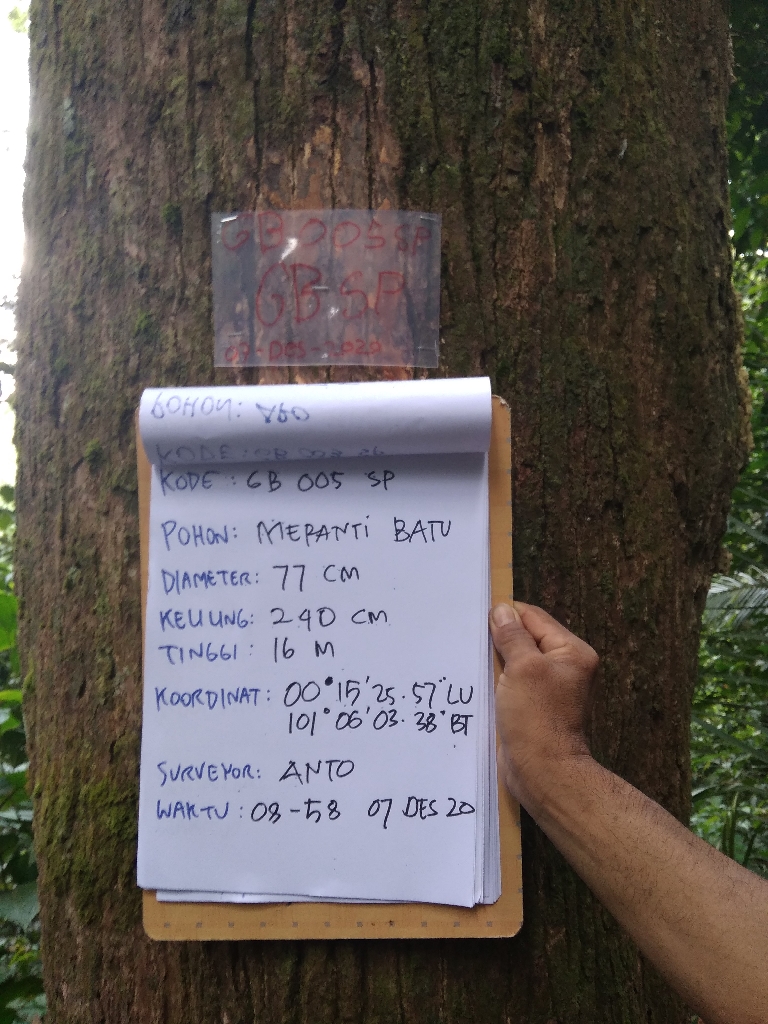 GB 005 SP
GB SP
07-DES-2020
POHON:
KODE : GB 005 SP
POHON: MERANTI BATU
DIAMETER: 77 CM
KELILING: 240 CM
TINGGI: 16 M
KOORDINAT: 00°15'25.57" LU
101°06'03.38" BT
SURVEYOR: ANTO
WAKTU: 08-58 07 DES 20